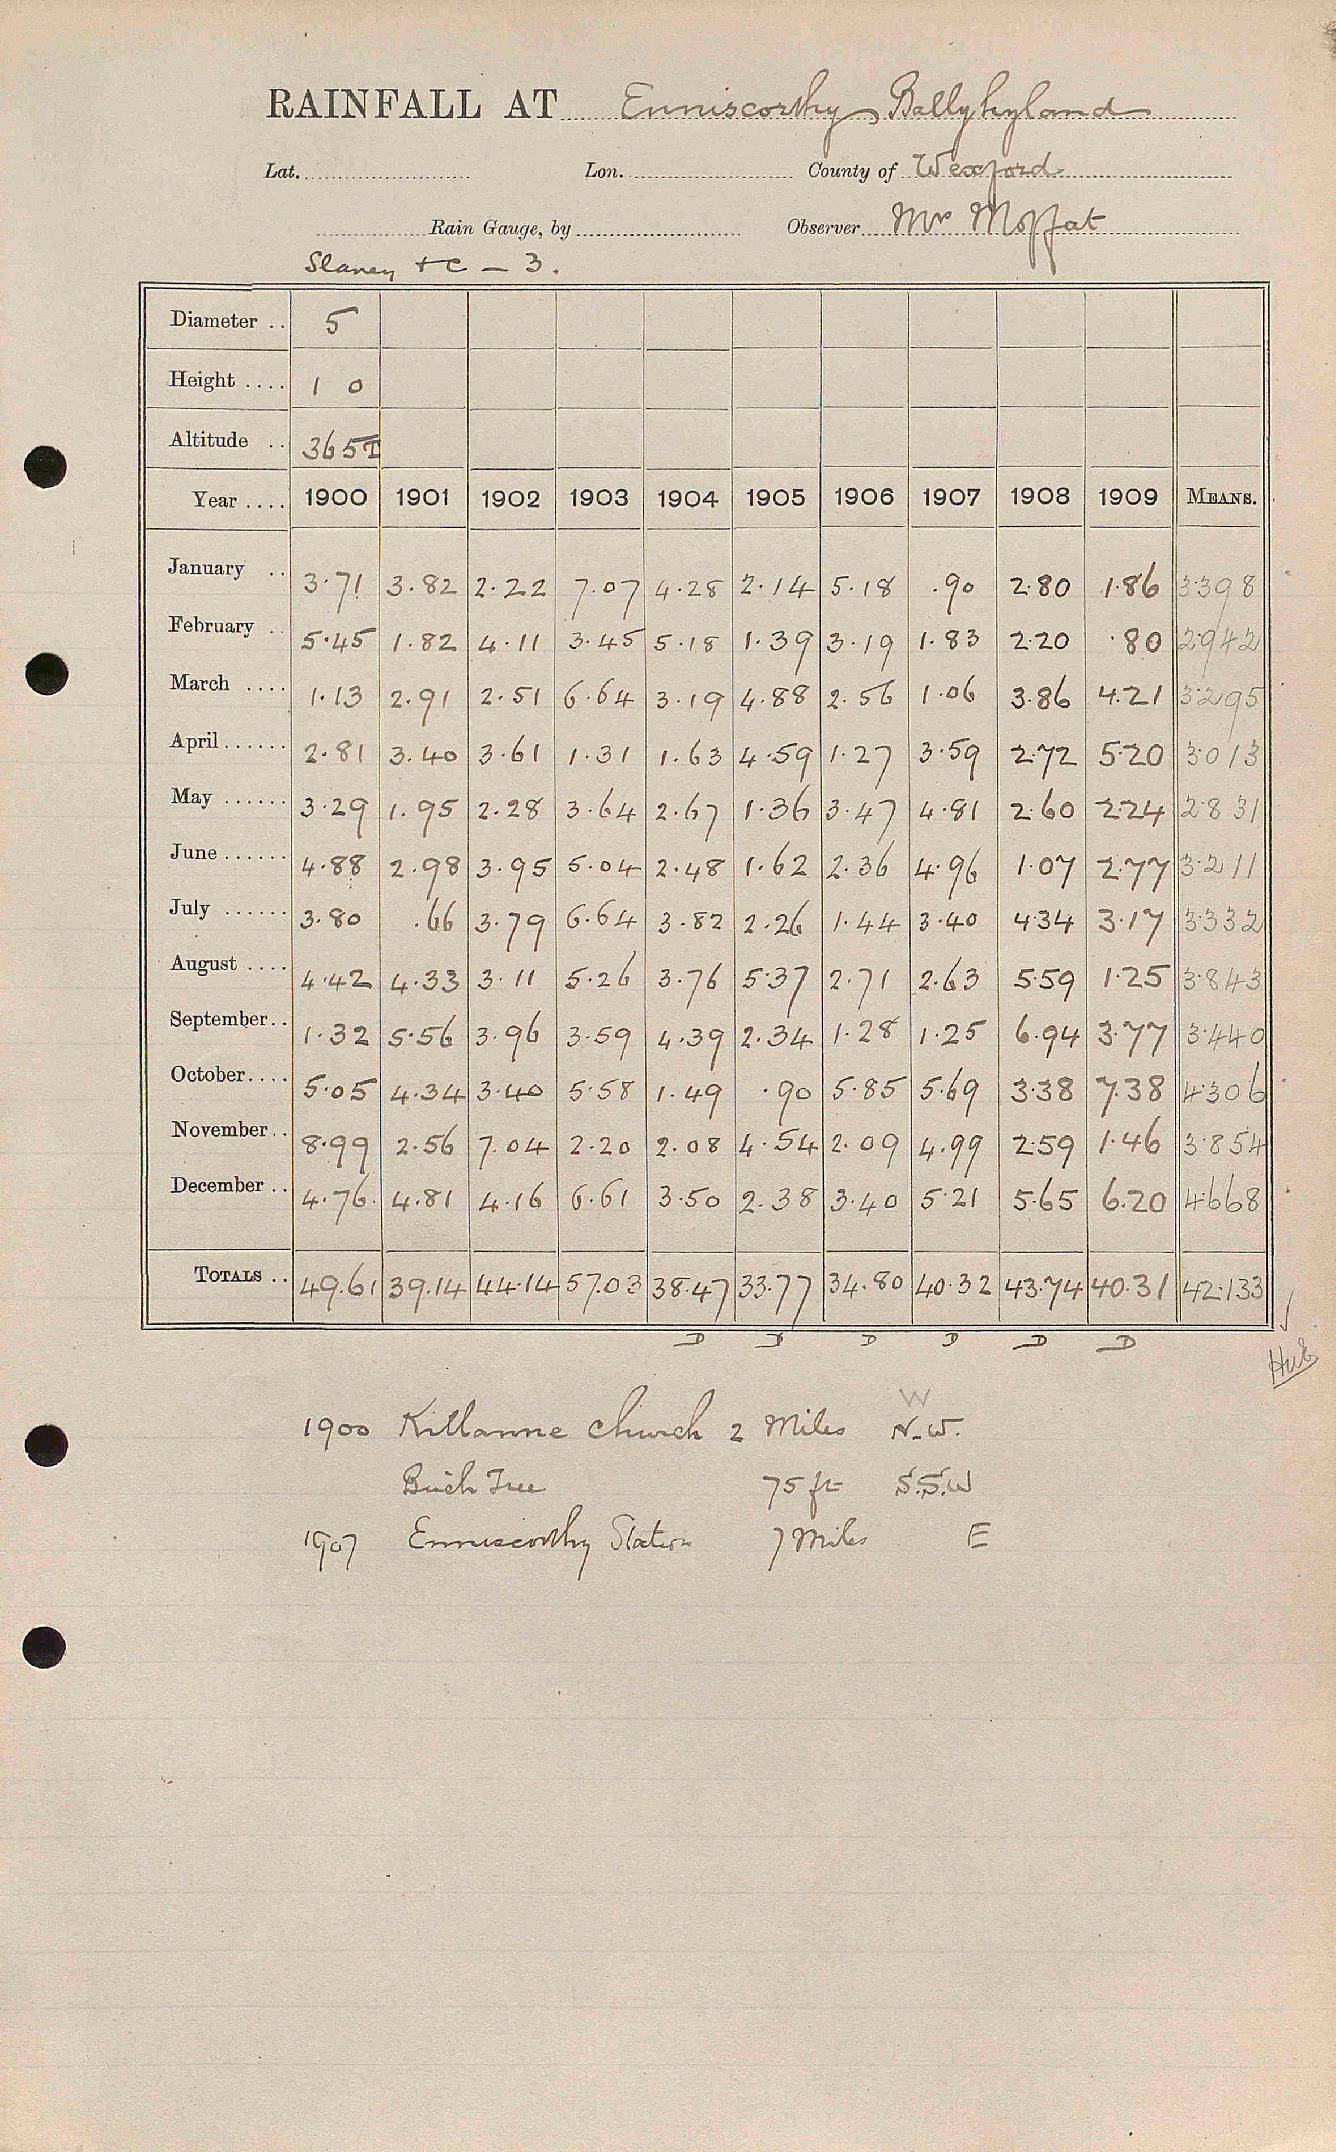 RAINFALL AT Enniscorthy Ballyhyland
Lat. Lon. County of Wexford
Rain Gauge, by Observer Mr Moffat
Slaney &c — 3.
Diameter .. 5
Height .... 1 0
Altitude .. 365T
Year .... 1900 1901 1902 1903 1904 1905 1906 1907 1908 1909 MEANS.
January .. 3.71 3.82 2.22 7.07 4.28 2.14 5.18 .90 2.80 1.86 3.398
February .. 5.45 1.82 4.11 3.45 5.18 1.39 3.19 1.83 2.20 .80 2.942
March .... 1.13 2.91 2.51 6.64 3.19 4.88 2.56 1.06 3.86 4.21 3.295
April...... 2.81 3.40 3.61 1.31 1.63 4.59 1.27 3.59 2.72 5.20 3.013
May ...... 3.29 1.95 2.28 3.64 2.67 1.36 3.47 4.81 2.60 2.24 2.831
June ...... 4.88 2.98 3.95 5.04 2.48 1.62 2.36 4.96 1.07 2.77 3.211
July ...... 3.80 .66 3.79 6.64 3.82 2.26 1.44 3.40 4.34 3.17 3.332
August .... 4.42 4.33 3.11 5.26 3.76 5.37 2.71 2.63 5.59 1.25 3.843
September.. 1.32 5.56 3.96 3.59 4.39 2.34 1.28 1.25 6.94 3.77 3.440
October.... 5.05 4.34 3.40 5.58 1.49 .90 5.85 5.69 3.38 7.38 4.306
November.. 8.99 2.56 7.04 2.20 2.08 4.54 2.09 4.99 2.59 1.46 3.854
December .. 4.76 4.81 4.16 6.61 3.50 2.38 3.40 5.21 5.65 6.20 4.668
TOTALS .. 49.61 39.14 44.14 57.03 38.47 33.77 34.80 40.32 43.74 40.31 42.133
D D D D D D
W
1900 Killanne Church 2 Miles N.W.
Birch Tree 75 ft S.S.W
1907 Enniscorthy Station 7 Miles E